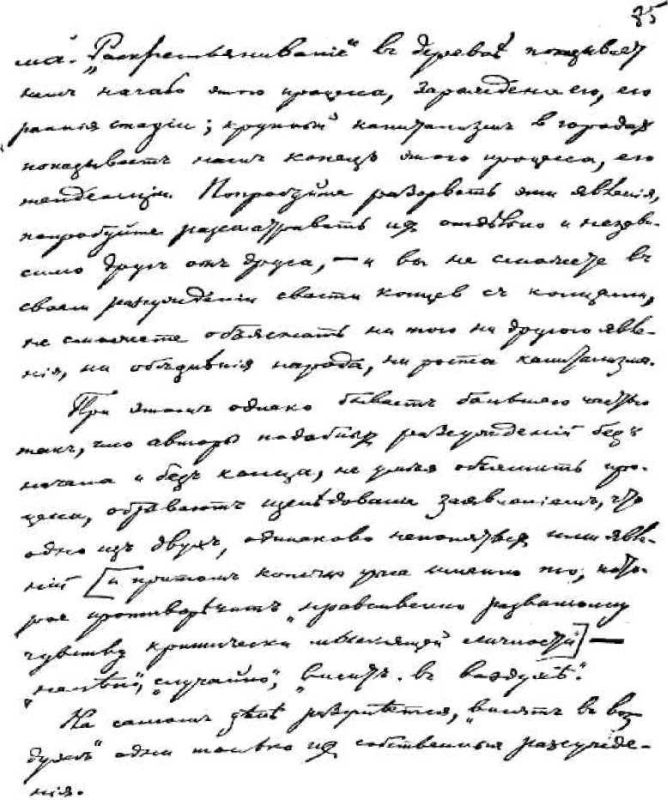 35
ма". „Раскрестьянивание" въ деревнѣ показываетъ
намъ начало этого процесса, зарожденіе его, его
раннія стадіи; крупный капитализмъ в городахъ
показываетъ намъ конецъ этого процесса, его
тенденціи. Попробуйте разорвать эти явленія,
попробуйте разсматривать их отдѣльно и незави-
симо другъ отъ друга, — и вы не сможете въ
своемъ разсужденіи свести концов съ концами,
не сможете объяснить ни того ни другого явле-
нія, ни обѣднѣнія народа, ни роста капитализма.
При этомъ однако бываетъ большею частью
такъ, что авторы подобных разсужденій безъ
начала и безъ конца, не умѣя объяснить про-
цесса, обрываютъ изслѣдованіе заявленіемъ, что
одно изъ двухъ, одинаково непонятых ими явле-
ній [и притомъ конечно уже именно то, кото-
рое противорѣчитъ „нравственно развитому
чувству критически мыслящей личности"] —
„нелѣпо", „случайно", „виситъ въ воздухѣ".
На самомъ дѣлѣ разумѣется, „висятъ въ воз-
духѣ" одни только их собственныя разсужде-
нія.